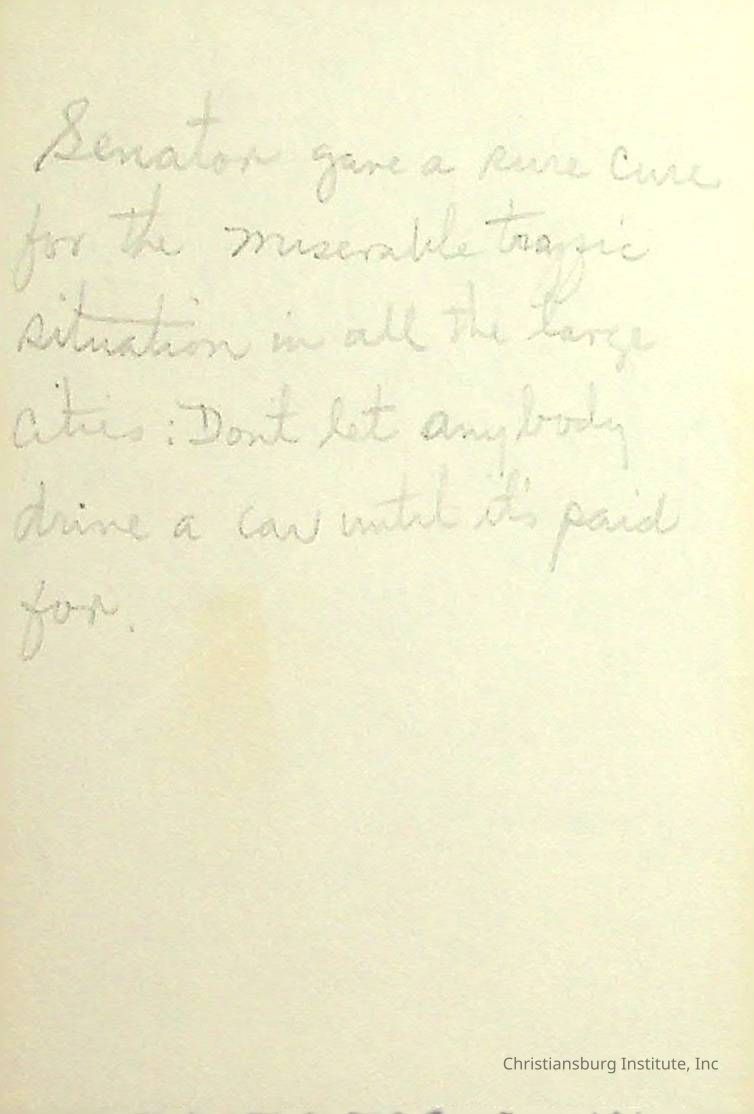 Senator gave a sure cure
for the miserable traffic
situation in all the large
cities: Dont let anybody
drive a car until it's paid
for.
Christiansburg Institute, Inc